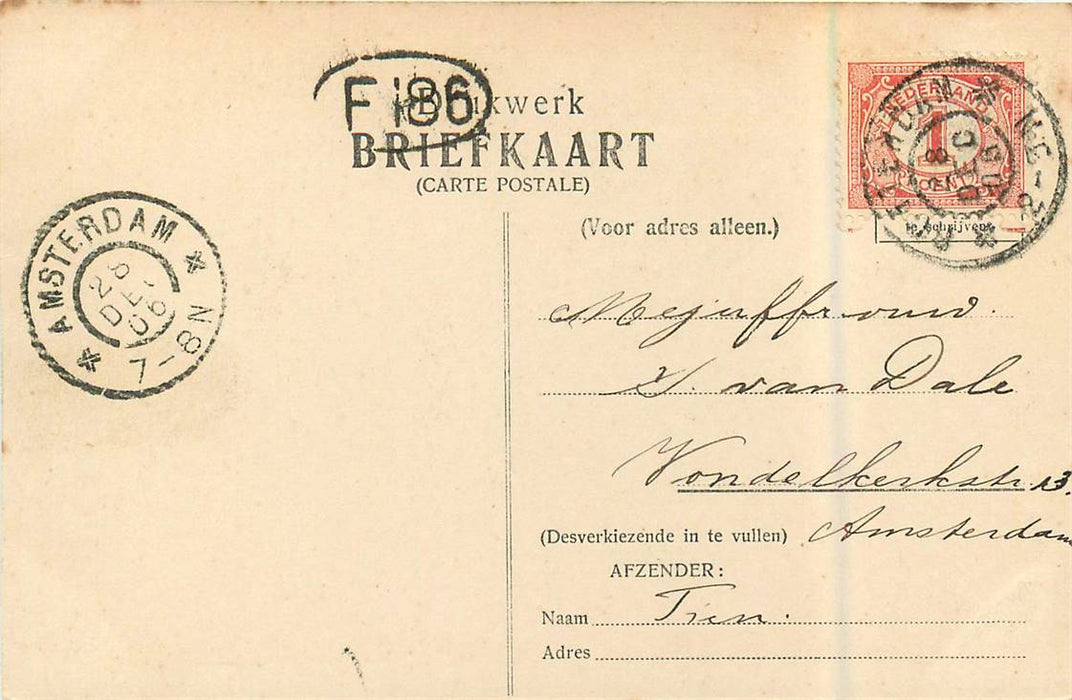 F 186
Drukwerk
BRIEFKAART
(CARTE POSTALE)
NEDERLAND
1
CENT
DEC
te schrijven
(Voor adres alleen.)
AMSTERDAM
28
DEC
06
7-8N
Mejuffrouw.
van Dale
Vondelkerkstr. 13.
(Desverkiezende in te vullen) Amsterdam
AFZENDER:
Naam Tien.
Adres